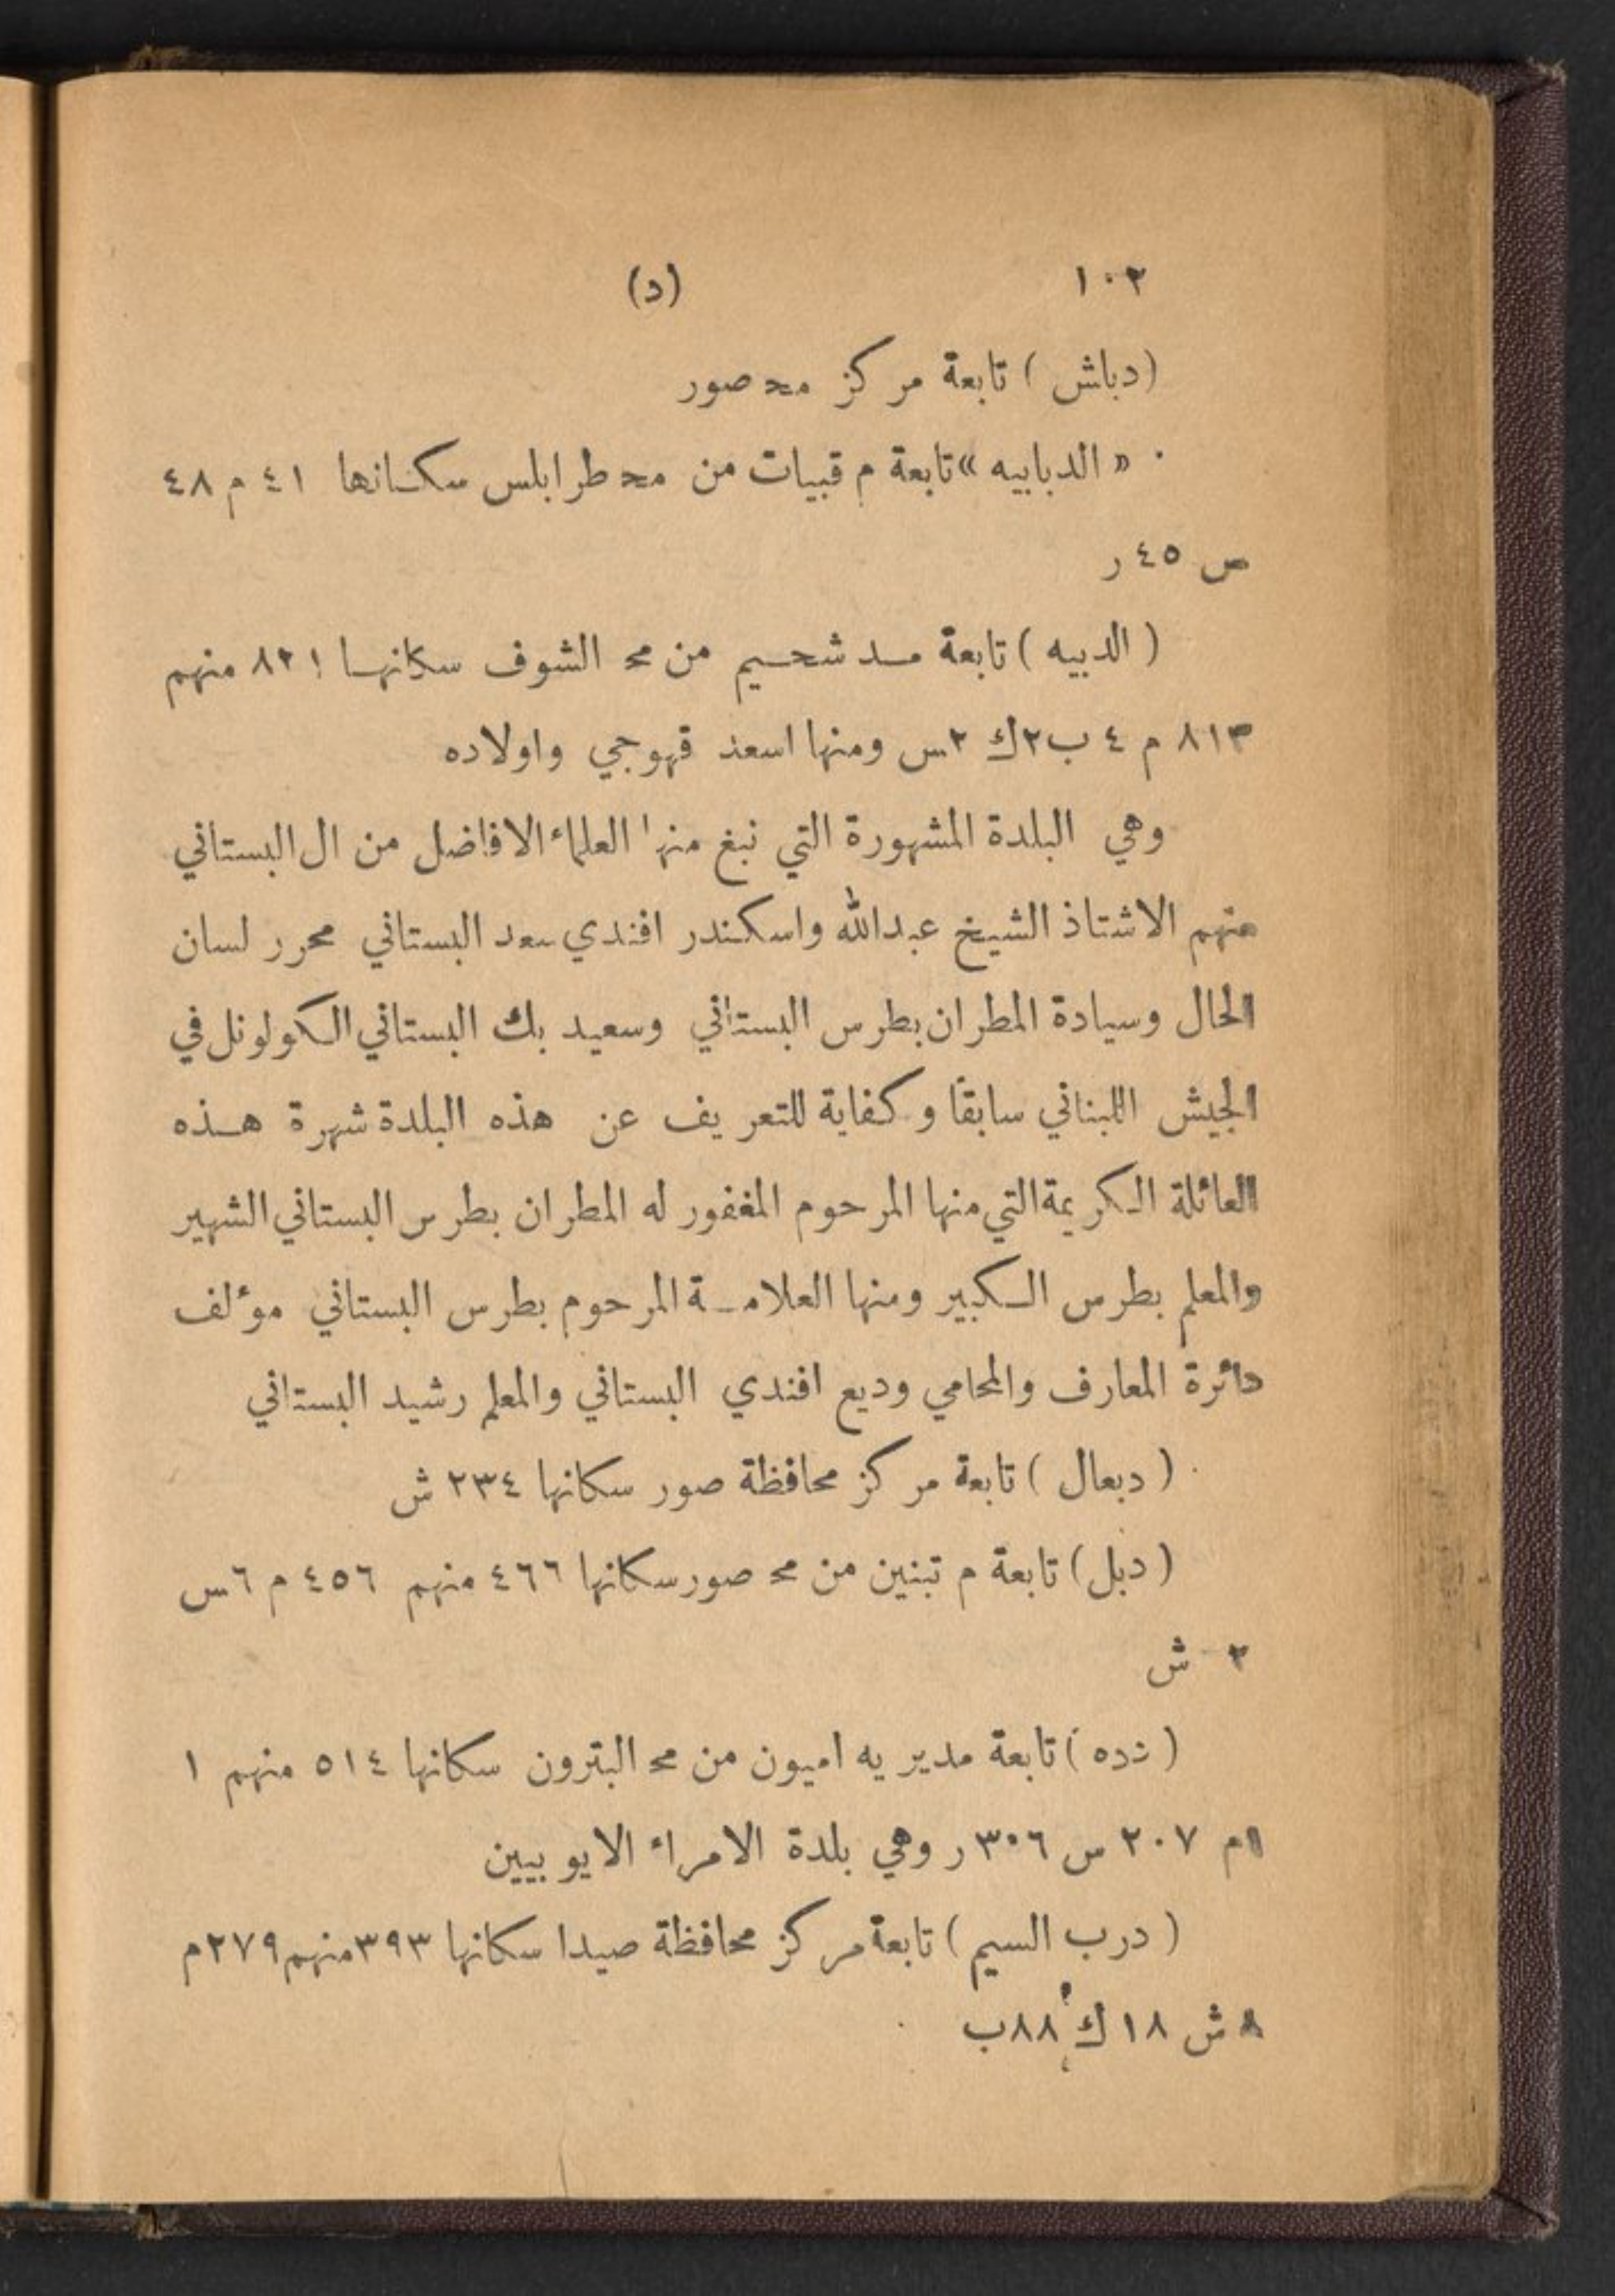 ١٠٢ (د)
(دباش) تابعة مركز مح صور
« الدبابيه » تابعة م قبيات من مح طرابلس سكانها ٤١ م ٤٨
س ٤٥ ر
( الدبيه ) تابعة مد شحيم من مح الشوف سكانها ٨٢١ منهم
٨١٣ م ٤ ب ٢ ك ٢ س ومنها اسعد قهوجي واولاده
وهي البلدة المشهورة التي نبغ منها العلماء الافاضل من ال البستاني
منهم الاشتاذ الشيخ عبدالله واسكندر افندي سعد البستاني محرر لسان
الحال وسيادة المطران بطرس البستاني وسعيد بك البستاني الكولونل في
الجيش اللبناني سابقًا وكفاية للتعريف عن هذه البلدة شهرة هذه
العائلة الكريمة التي منها المرحوم المغفور له المطران بطرس البستاني الشهير
والمعلم بطرس الكبير ومنها العلامة المرحوم بطرس البستاني موءلف
دائرة المعارف والمحامي وديع افندي البستاني والمعلم رشيد البستاني
( دبعال ) تابعة مركز محافظة صور سكانها ٢٣٤ ش
( دبل ) تابعة م تبنين من مح صور سكانها ٤٦٦ منهم ٤٥٦ م ٦ س
٢ ش
( دده ) تابعة مديريه اميون من مح البترون سكانها ٥١٤ منهم ١
ام ٢٠٧ س ٣٠٦ ر وهي بلدة الامراء الايوبيين
( درب السيم ) تابعة مركز محافظة صيدا سكانها ٣٩٣ منهم ٢٧٩ م
٨ ش ١٨ ك ٨٨ ب